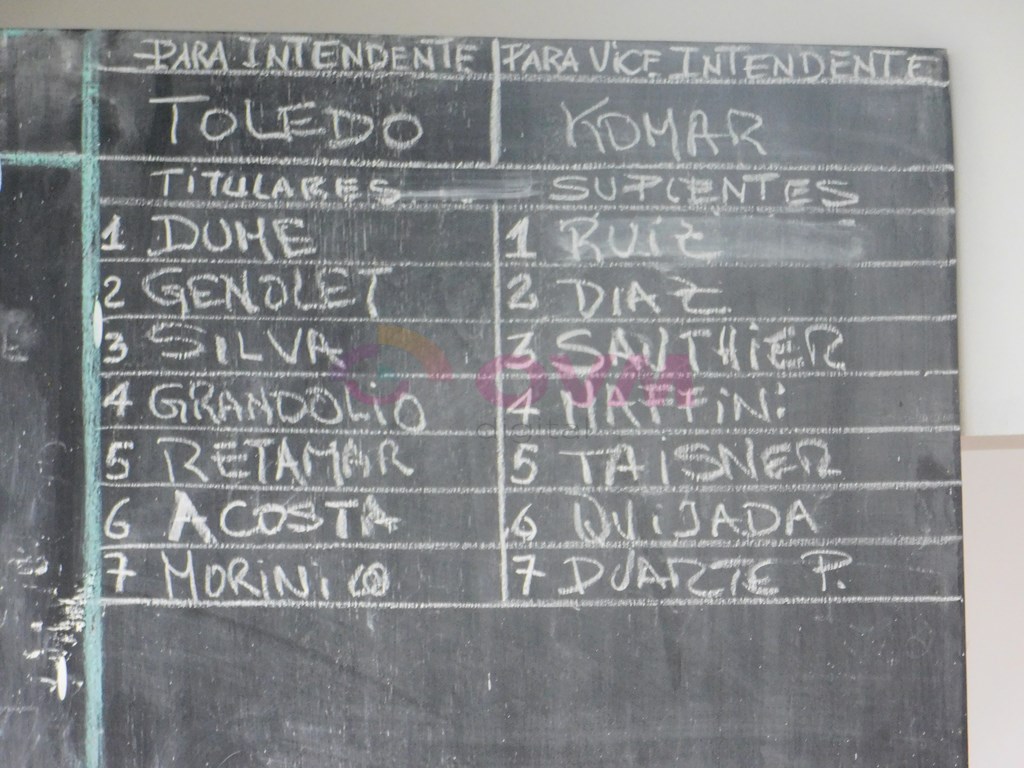 PARA INTENDENTE PARA VICE INTENDENTE
TOLEDO KOMAR
TITULARES SUPLENTES
1 DUME 1 RUIZ
2 GENOLET 2 DIAZ
3 SILVA 3 SAUTHIER
4 GRANDOLIO 4 MAFFINI
5 RETAMAR 5 TAISNER
6 ACOSTA 6 QUIJADA
7 MORINICO 7 DUARTE P.
OVM